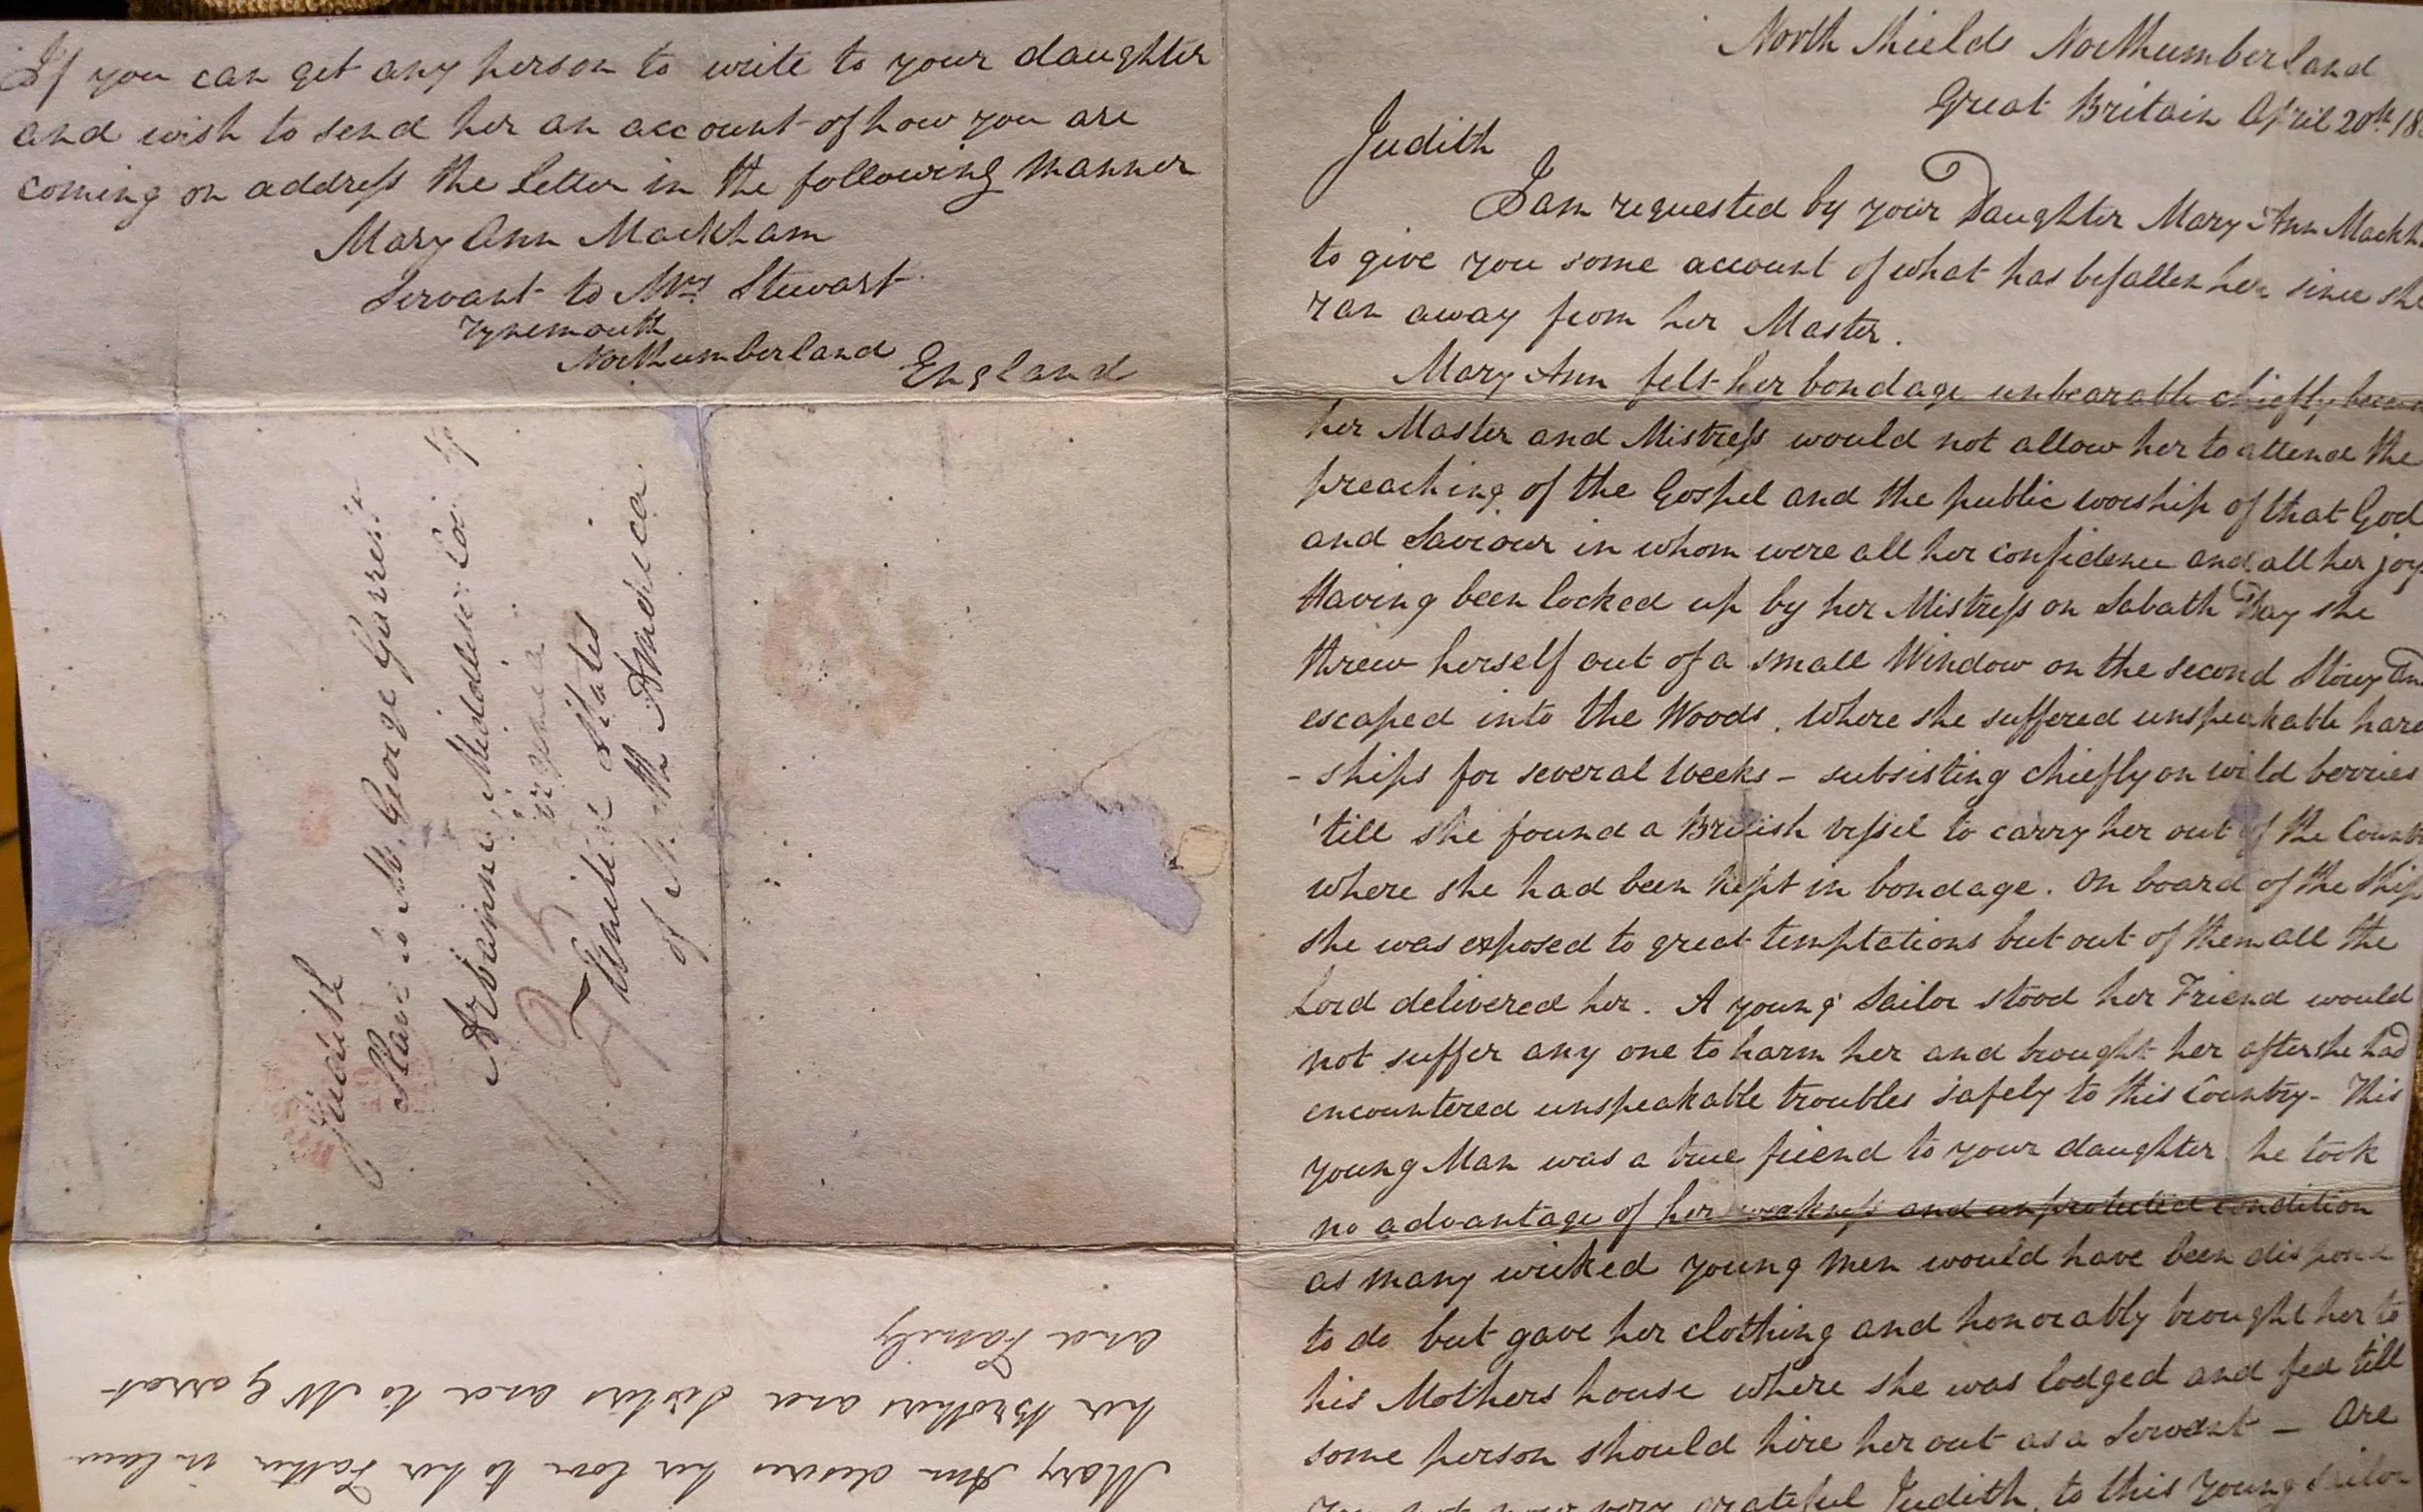 If you can get any person to write to your daughter
and wish to send her an account of how you are
coming on address the letter in the following manner
Mary Ann Mackham
Servant to Mrs Stewart
Tynemouth
Northumberland England
Judith
Slave to Mr George Garres
Middlesex
Virginia
United States
of North America
Mary Ann desires her love to her Father in law
her Brothers and Sisters and to Mr Garrat
and Family
North Shields Northumberland
Great Britain April 20th 18
Judith
I am requested by your Daughter Mary Ann Mackh
to give you some account of what has befallen her since she
ran away from her Master.
Mary Ann felt her bondage unbearable chiefly
her Master and Mistress would not allow her to attend the
preaching of the Gospel and the public worship of that God
and Saviour in whom were all her confidence and all her joy
Having been locked up by her Mistress on Sabath Day she
threw herself out of a small Window on the second Story and
escaped into the Woods. Where she suffered unspeakable hard
- ships for several Weeks - subsisting chiefly on wild berries
'till she found a British vessel to carry her out of the Count
where she had been kept in bondage. On board of the Ship
she was exposed to great temptations but out of them all the
Lord delivered her. A young Sailor stood her Friend would
not suffer any one to harm her and brought her after she had
encountered unspeakable troubles safely to this Country - This
young Man was a true friend to your daughter he took
no advantage of her weakness and unprotected condition
as many wicked young men would have been
to do but gave her clothing and honorably brought her to
his Mothers house where she was lodged and fed till
some person should hire her out as a Servant - Are
you not now very grateful Judith, to this young Sailor